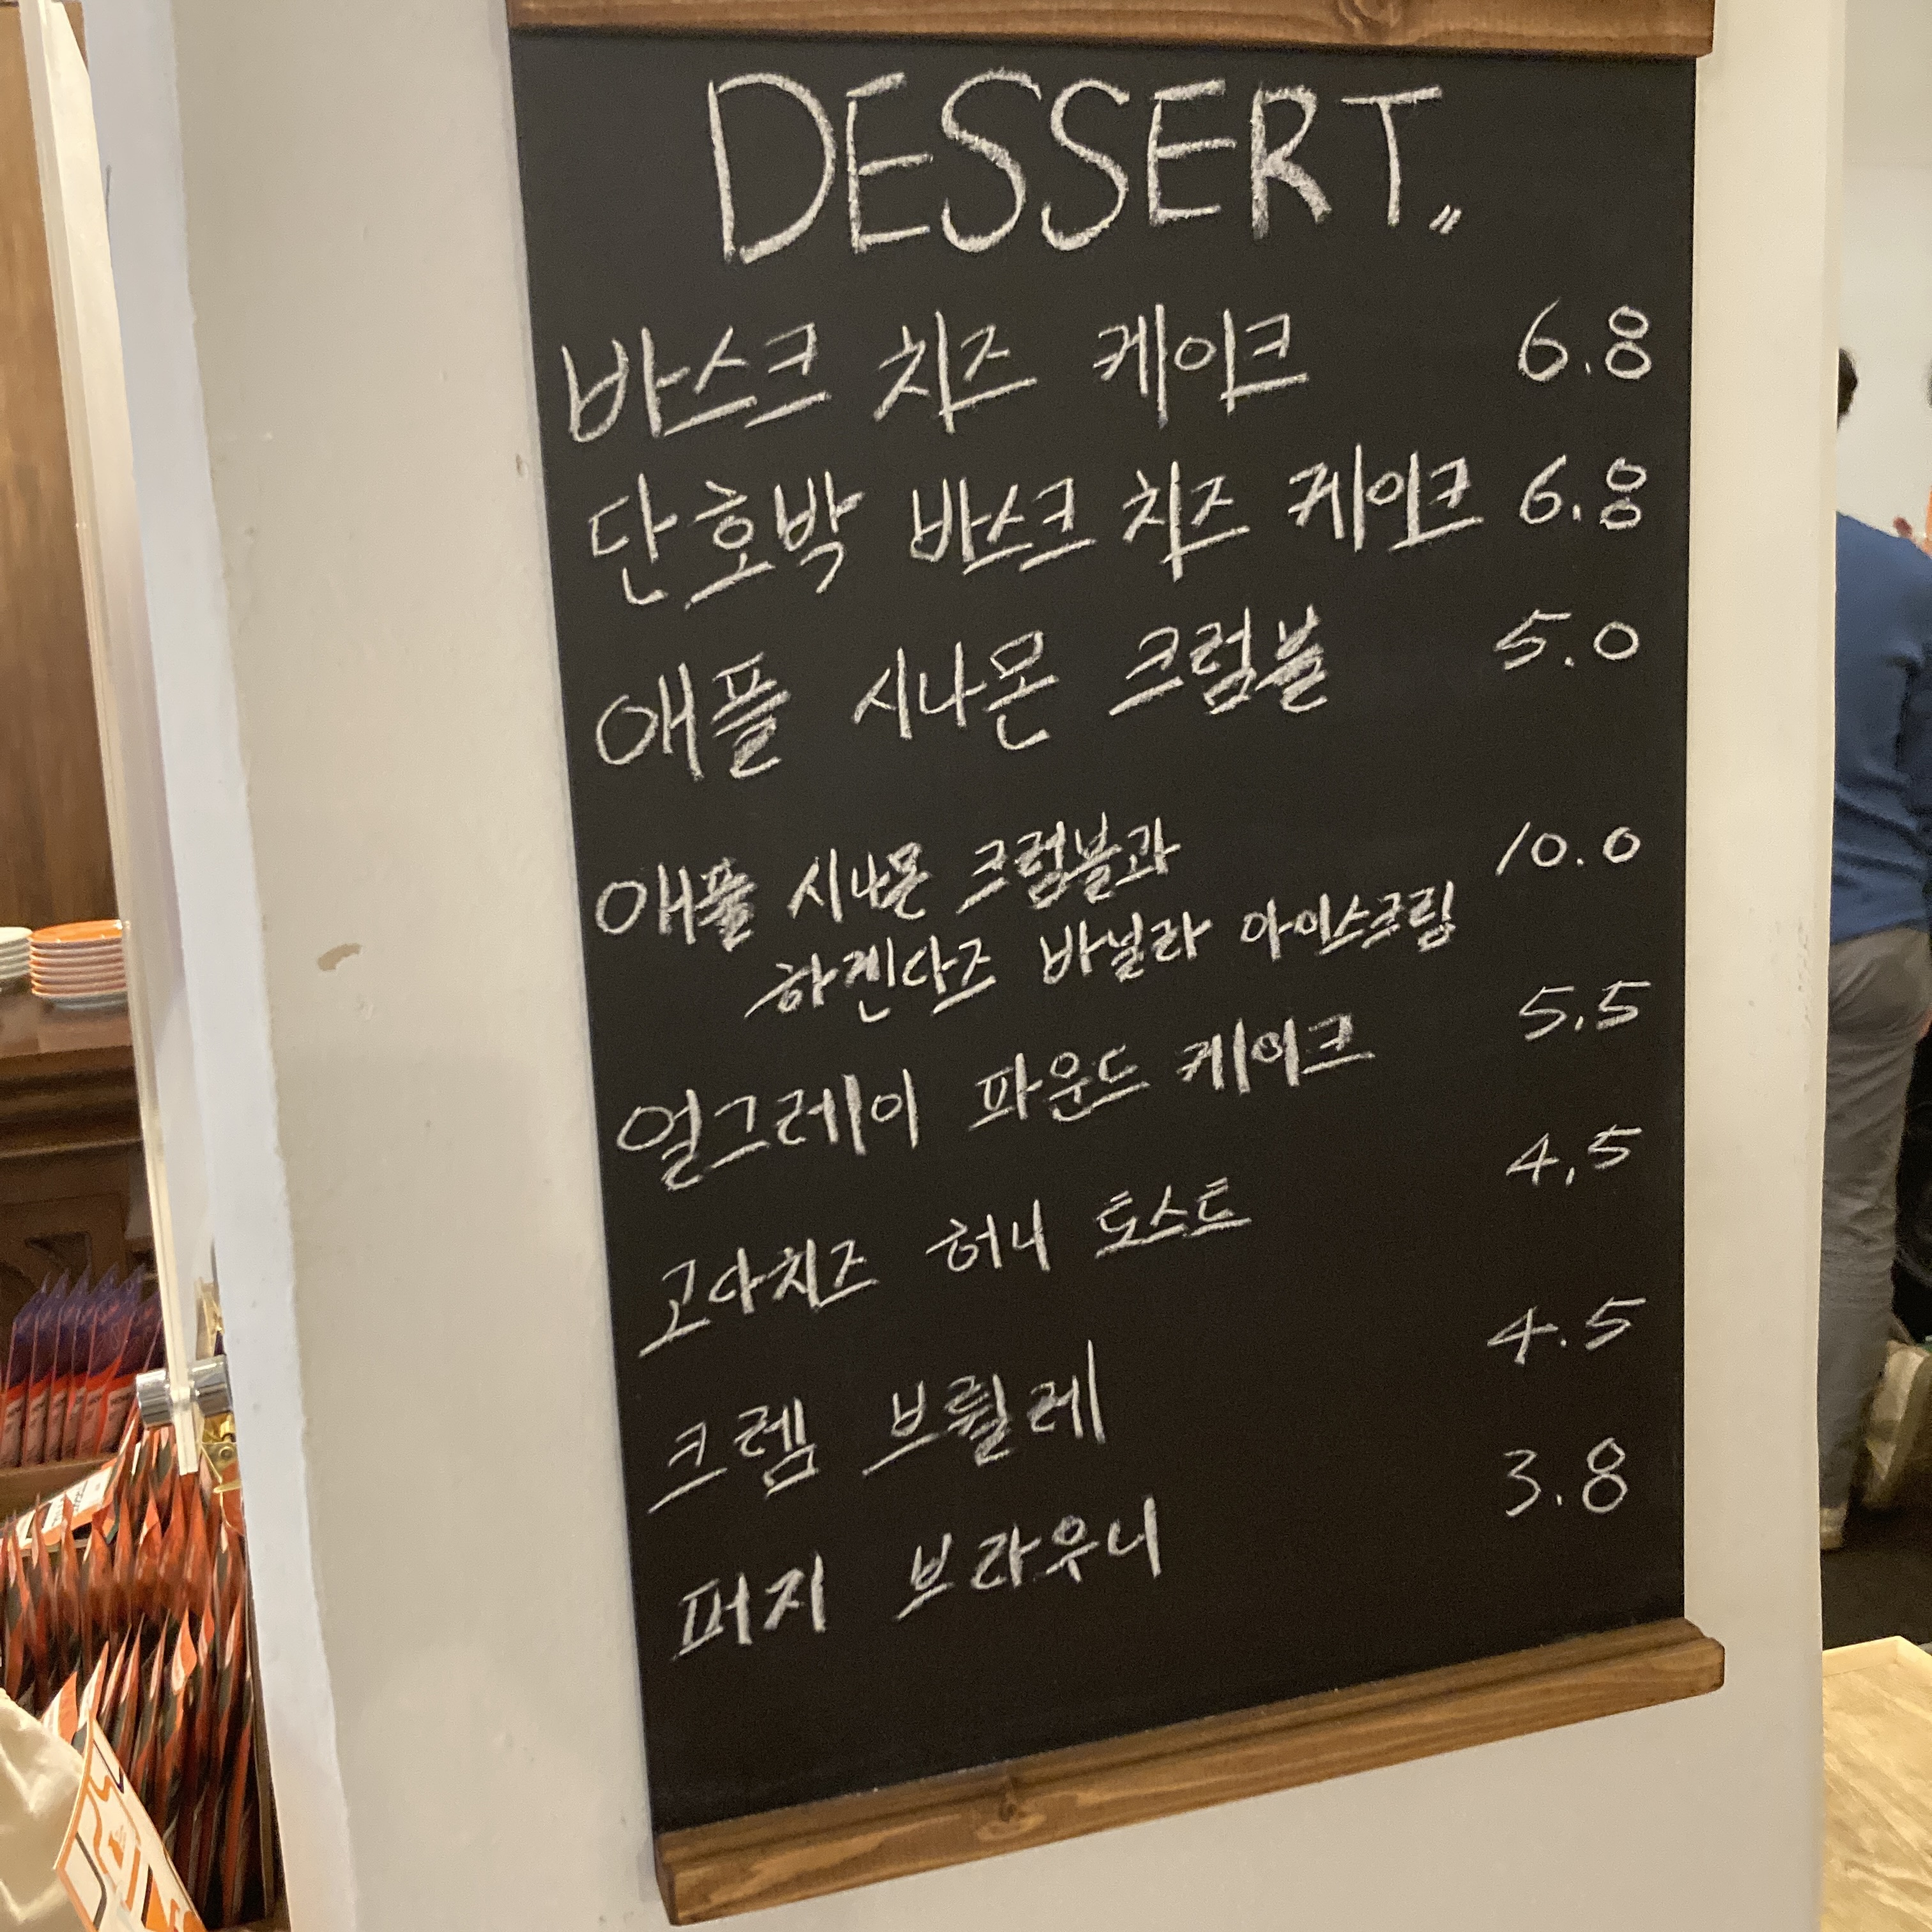 DESSERT〃
바스크 치즈 케이크 6.8
단호박 바스크 치즈 케이크 6.8
애플 시나몬 크럼블 5.0
애플 시나몬 크럼블과 10.0
하겐다즈 바닐라 아이스크림
얼그레이 파운드 케이크 5.5
고다치즈 허니 토스트 4,5
크렘 브륄레 4.5
퍼지 브라우니 3.8